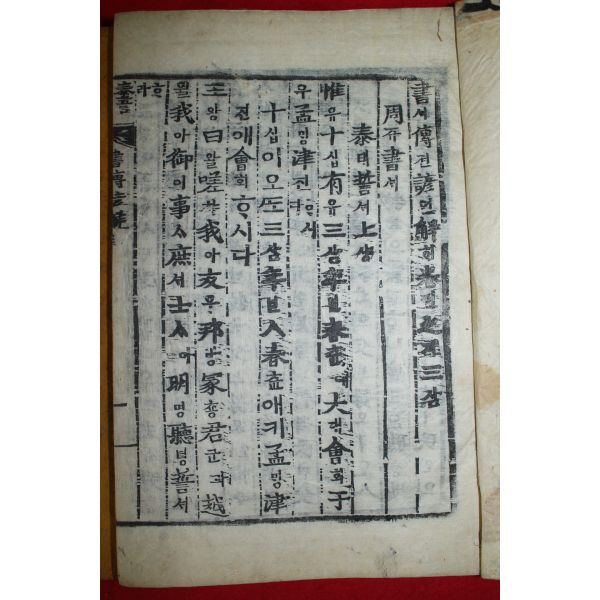 書셔傳젼諺언解ᄒᆡ卷권之지三삼
周쥬書셔
泰태誓셔上샹
惟유十십有유三삼年년春츈애大대會회于
우孟ᄆᆡᆼ津진ᄒᆞ시다
十십이오ᄯᅩ三삼年년ㅅ春츈애키孟ᄆᆡᆼ津
진애會회ᄒᆞ시다
王왕曰왈嗟차我아友우邦방冢춍君군과越
월我아御어事ᄉᆞ庶셔士ᄉᆞ아明명聽텽誓셔
ᄒᆞ라
泰誓 書傳諺解